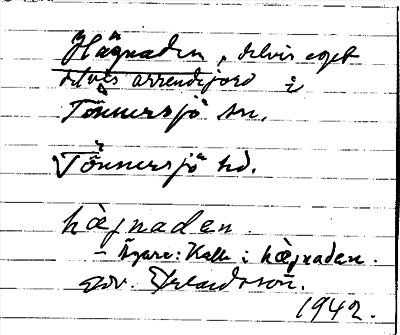 Hägnaden, delvis eget
delvis arrendejord i
Tönnersjö sn.
Tönnersjö hd.
hægnaden.
– Ägare: Kalle i hægnaden.
1942.